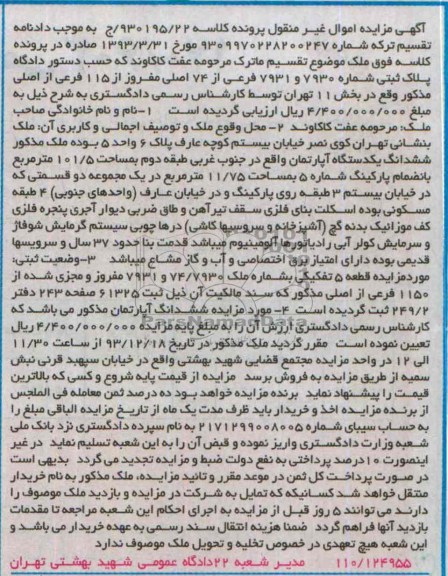 آگهی مزایده اموال غیر منقول پرونده کلاسه ۹۳۰۱۹۵/۲۲/ج به موجب دادنامه
تقسیم ترکه شماره ۹۳۰۹۹۷۰۲۲۸۲۰۰۲۴۷ مورخ ۱۳۹۳/۳/۳۱ صادره در پرونده
کلاسه فوق ملک موضوع تقسیم ماترک مرحومه عفت کاکاوند که حسب دستور دادگاه
پلاک ثبتی شماره ۷۹۳۰ و ۷۹۳۱ فرعی از ۷۴ اصلی مفروز از ۱۱۵ فرعی از اصلی
مذکور وقع در بخش ۱۱ تهران توسط کارشناس رسمی دادگستری به شرح ذیل به
مبلغ ۴/۴۰۰/۰۰۰/۰۰۰ ریال ارزیابی گردیده است ۱-نام و نام خانوادگی صاحب
ملک: مرحومه عفت کاکاوند ۲- محل وقوع ملک و توصیف اجمالی و کاربری آن: ملک
بنشانی تهران کوی نصر خیابان بیستم کوچه عارف پلاک ۶ واحد ۵ بوده ملک مذکور
ششدانگ یکدستگاه آپارتمان واقع در جنوب غربی طبقه دوم بمساحت ۱۰۱/۵ مترمربع
بانضمام پارکینگ شماره ۵ بمساحت ۱۱/۷۵ مترمربع در یک مجموعه دو قسمتی که
در خیابان بیستم ۳ طبقه روی پارکینگ و در خیابان عارف (واحدهای جنوبی) ۴ طبقه
مسکونی بوده اسکلت بنای فلزی سقف تیرآهن و طاق ضربی دیوار آجری پنجره فلزی
کف موزائیک بدنه گچ (آشپزخانه و سرویسها کاشی) درها چوبی سیستم گرمایش شوفاژ
و سرمایش کولر آبی رادیاتورها آلومینیوم میباشد قدمت بنا حدود ۳۷ سال و سرویسها
قدیمی بوده دارای امتیاز برق اختصاصی و آب و گاز مشاع میباشد ۳-وضعیت ثبتی:
موردمزایده قطعه ۵ تفکیکی بشماره ملک ۷۴/۷۹۳۰ و ۷۹۳۱ مفروز و مجزی شده از
۱۱۵۰ فرعی از اصلی مذکور که سند مالکیت آن ذیل ثبت ۶۱۳۲۵ صفحه ۲۴۳ دفتر
۲۴۹/۲ ثبت گردیده است ۴- مورد مزایده ششدانگ آپارتمان مذکور می باشد که
کارشناس رسمی دادگستری ارزش آن را به مبلغ پایه مزایده ۴/۴۰۰/۰۰۰/۰۰۰ ریال
تعیین نموده است مقرر گردید ملک مذکور در تاریخ ۹۳/۱۲/۱۸ از ساعت ۱۱/۳۰
الی ۱۲ در واحد مزایده مجتمع قضایی شهید بهشتی واقع در خیابان سپهبد قرنی نبش
سمیه از طریق مزایده به فروش برسد مزایده از قیمت پایه شروع و کسی که بالاترین
قیمت را پیشنهاد نماید برنده مزایده خواهد بود ده درصد ثمن معامله فی المجلس
از برنده مزایده اخذ و خریدار باید ظرف مدت یک ماه از تاریخ مزایده الباقی مبلغ را
به حساب سیبای شماره ۲۱۷۱۲۹۹۰۰۸۰۰۵ به نام سپرده دادگستری نزد بانک ملی
شعبه وزارت دادگستری واریز نموده و قبض آن را به این شعبه تسلیم نماید در غیر
اینصورت ۱۰درصد پرداختی به نفع دولت ضبط و مزایده تجدید می گردد بدیهی است
در صورت پرداخت کل ثمن در موعد مقرر و تائید مزایده، ملک مذکور به نام خریدار
منتقل خواهد شد کسانیکه که تمایل به شرکت در مزایده و بازدید ملک موصوف را
دارند می توانند ۵ روز قبل از مزایده به اجرای احکام این شعبه مراجعه تا مقدمات
بازدید آنها فراهم گردد ضمنا هزینه انتقال سند رسمی به عهده خریدار می باشد و
این شعبه هیچ تعهدی در خصوص تخلیه و تحویل ملک موصوف ندارد
۱۱۰/۱۲۴۹۵۵ مدیر شعبه ۲۲دادگاه عمومی شهید بهشتی تهران